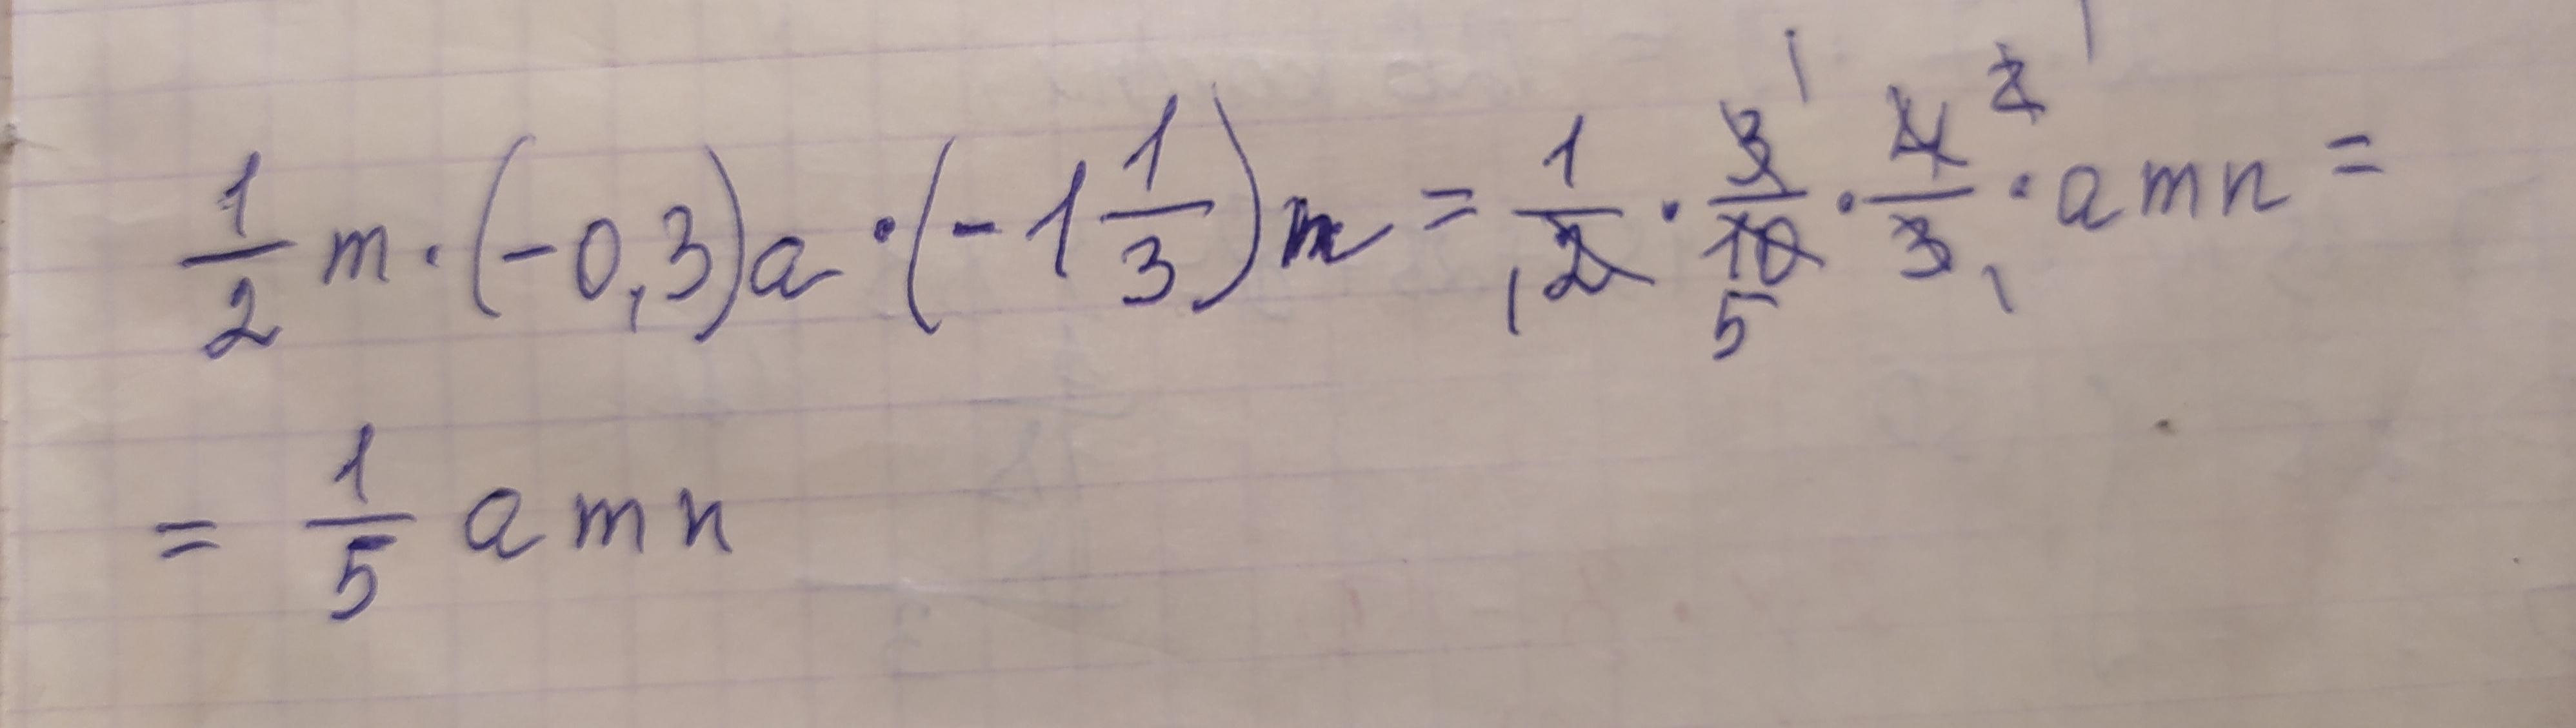 1/2 m · (-0,3)a · (-1 1/3) n = 1/2 · 3/10 · 4/3 · amn =
= 1/5 amn